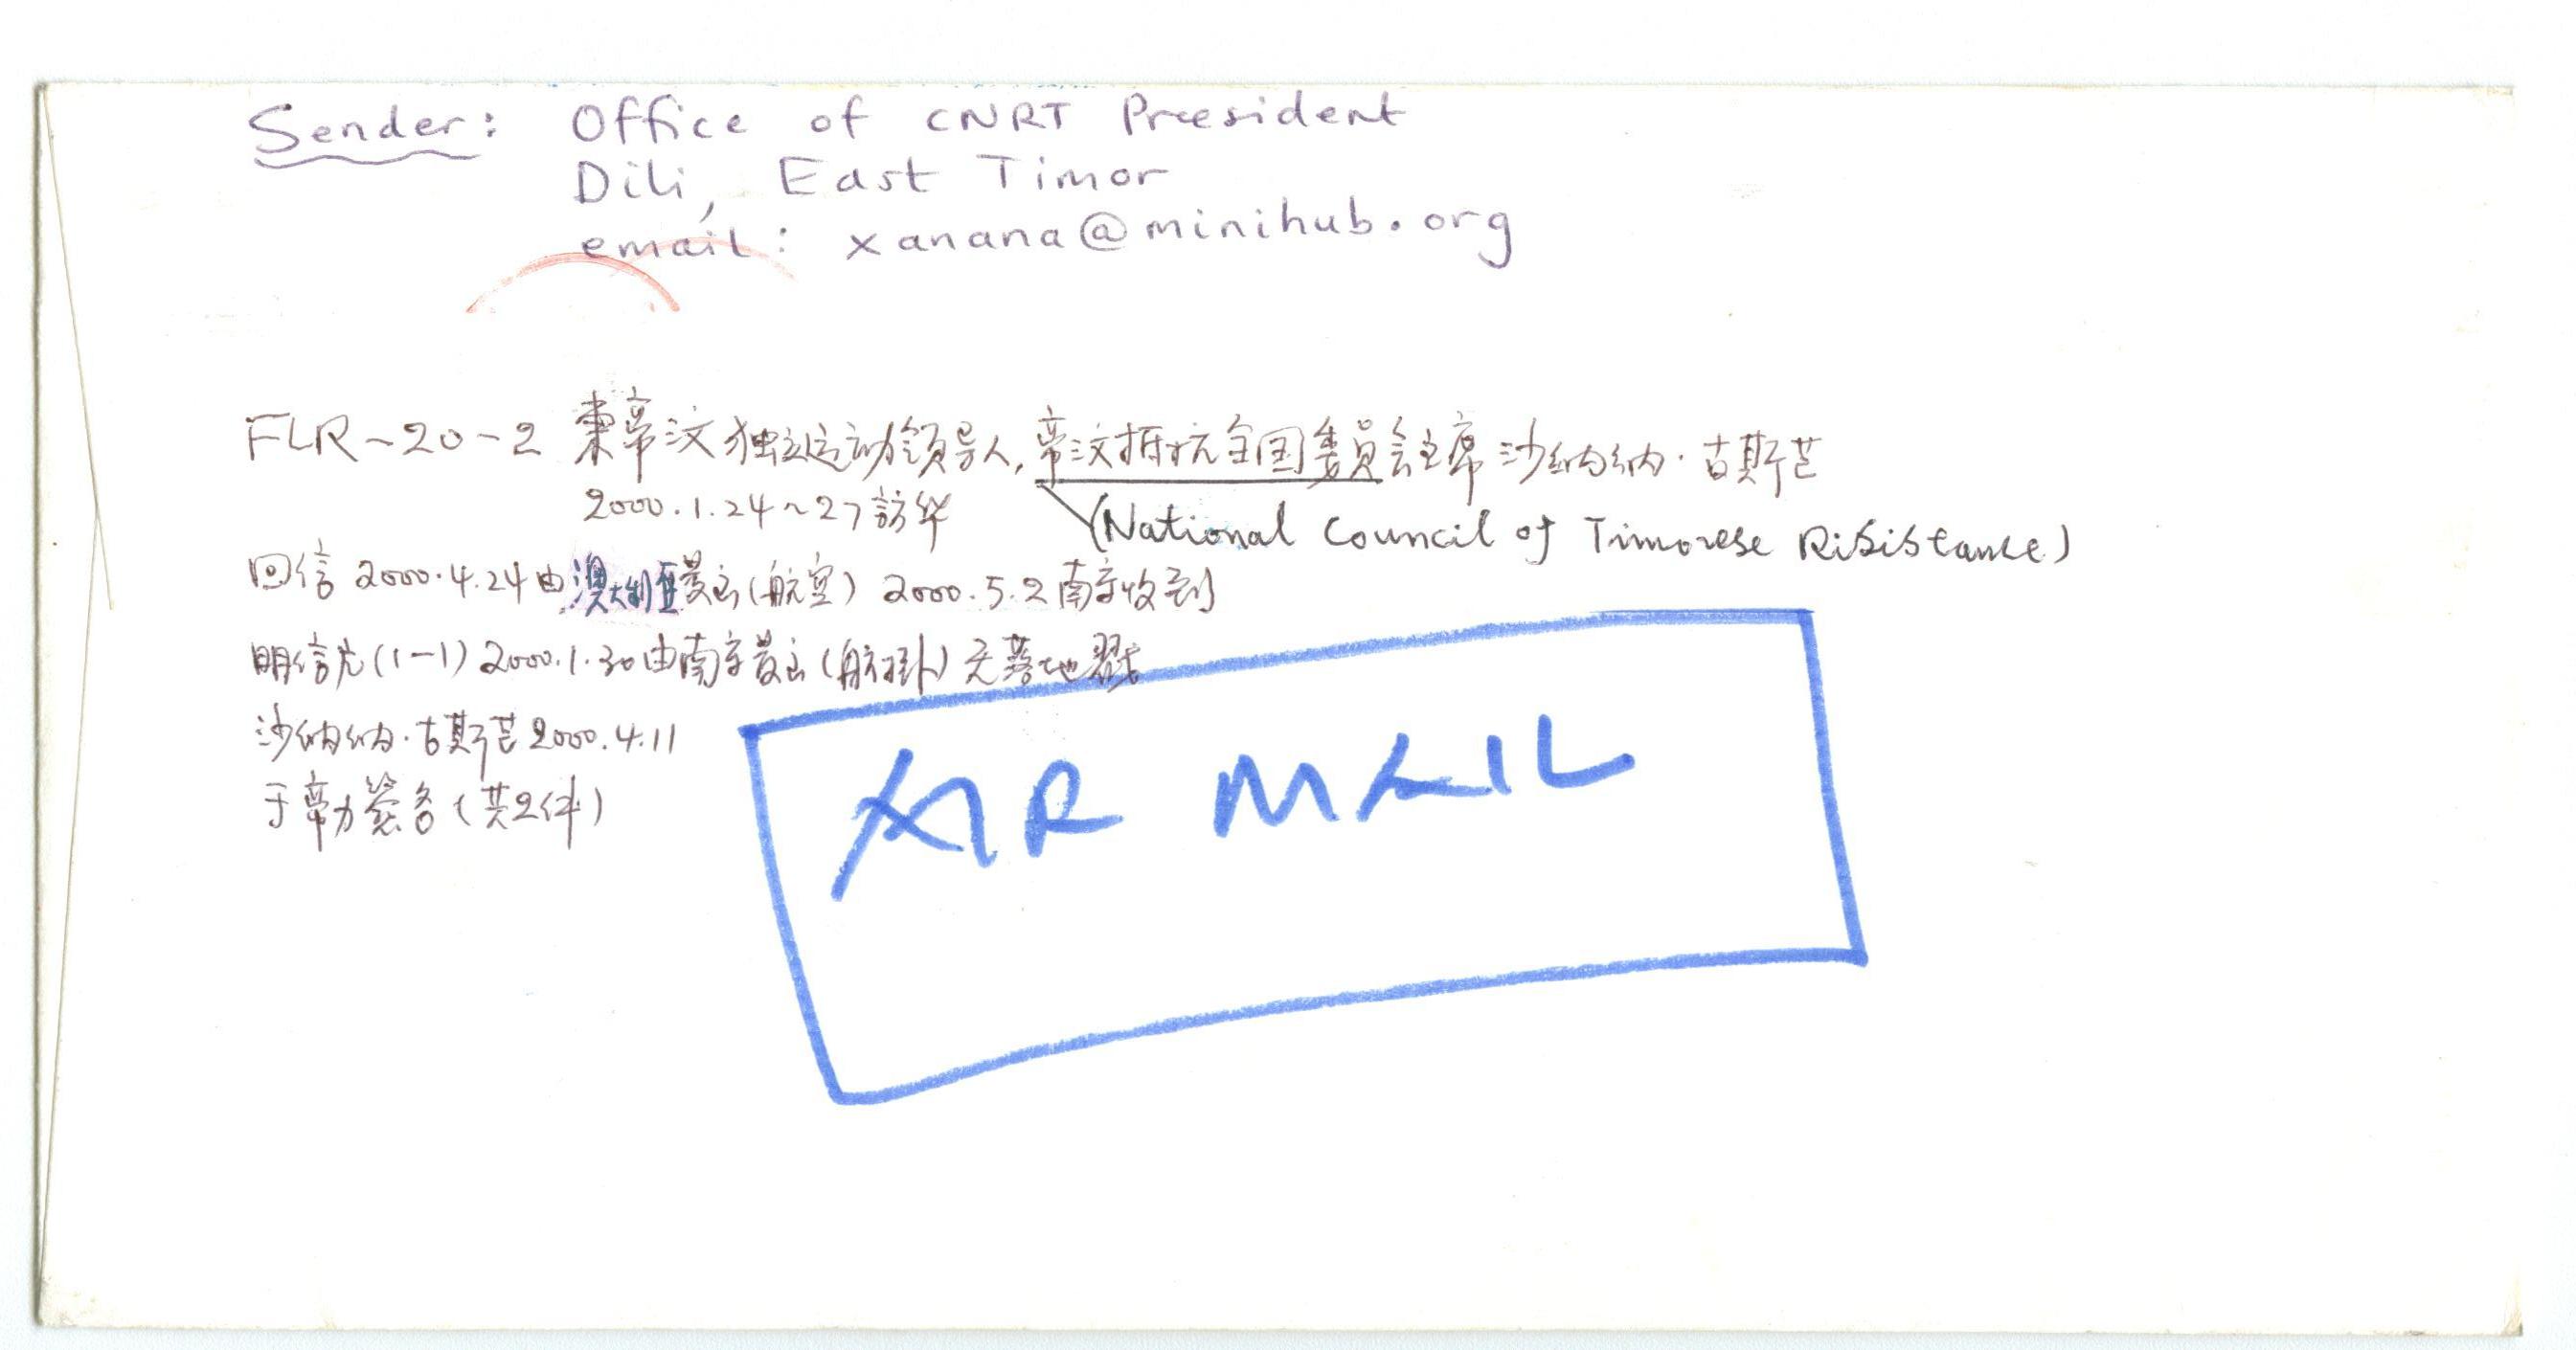 Sender: Office of CNRT President
Dili, East Timor
email: xanana@minihub.org
FLR-20-2 東帝汶独立运动领导人,帝汶抵抗全国委員会主席沙纳纳·古斯芒
2000.1.24~27訪华
(National Council of Timorese Risistance)
回信 2000.4.24由澳大利亚发出(航空) 2000.5.2南京收到
明信片(1-1) 2000.1.30由南京发出(航掛) 无落地戳
沙纳纳·古斯芒2000.4.11
于帝力签名(共2件)
AIR MAIL